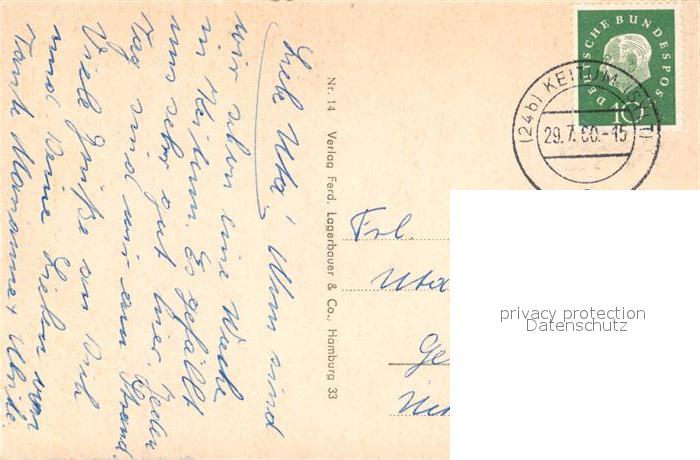 Liebe Uta! Nun sind
wir schon eine Woche
in Keitum. Es gefällt
uns sehr gut hier. Jeden
Tag sind wir am Strand.
Viele Grüße an Dich
und Deine Lieben von
Tante Marianne +
Nr. 14 Verlag Ferd. Lagerbauer & Co., Hamburg 33
DEUTSCHE BUNDESPOS
10
(24b) KEITUM
29.7.60.-15
Frl.
Uta
Ge
privacy protection
Datenschutz